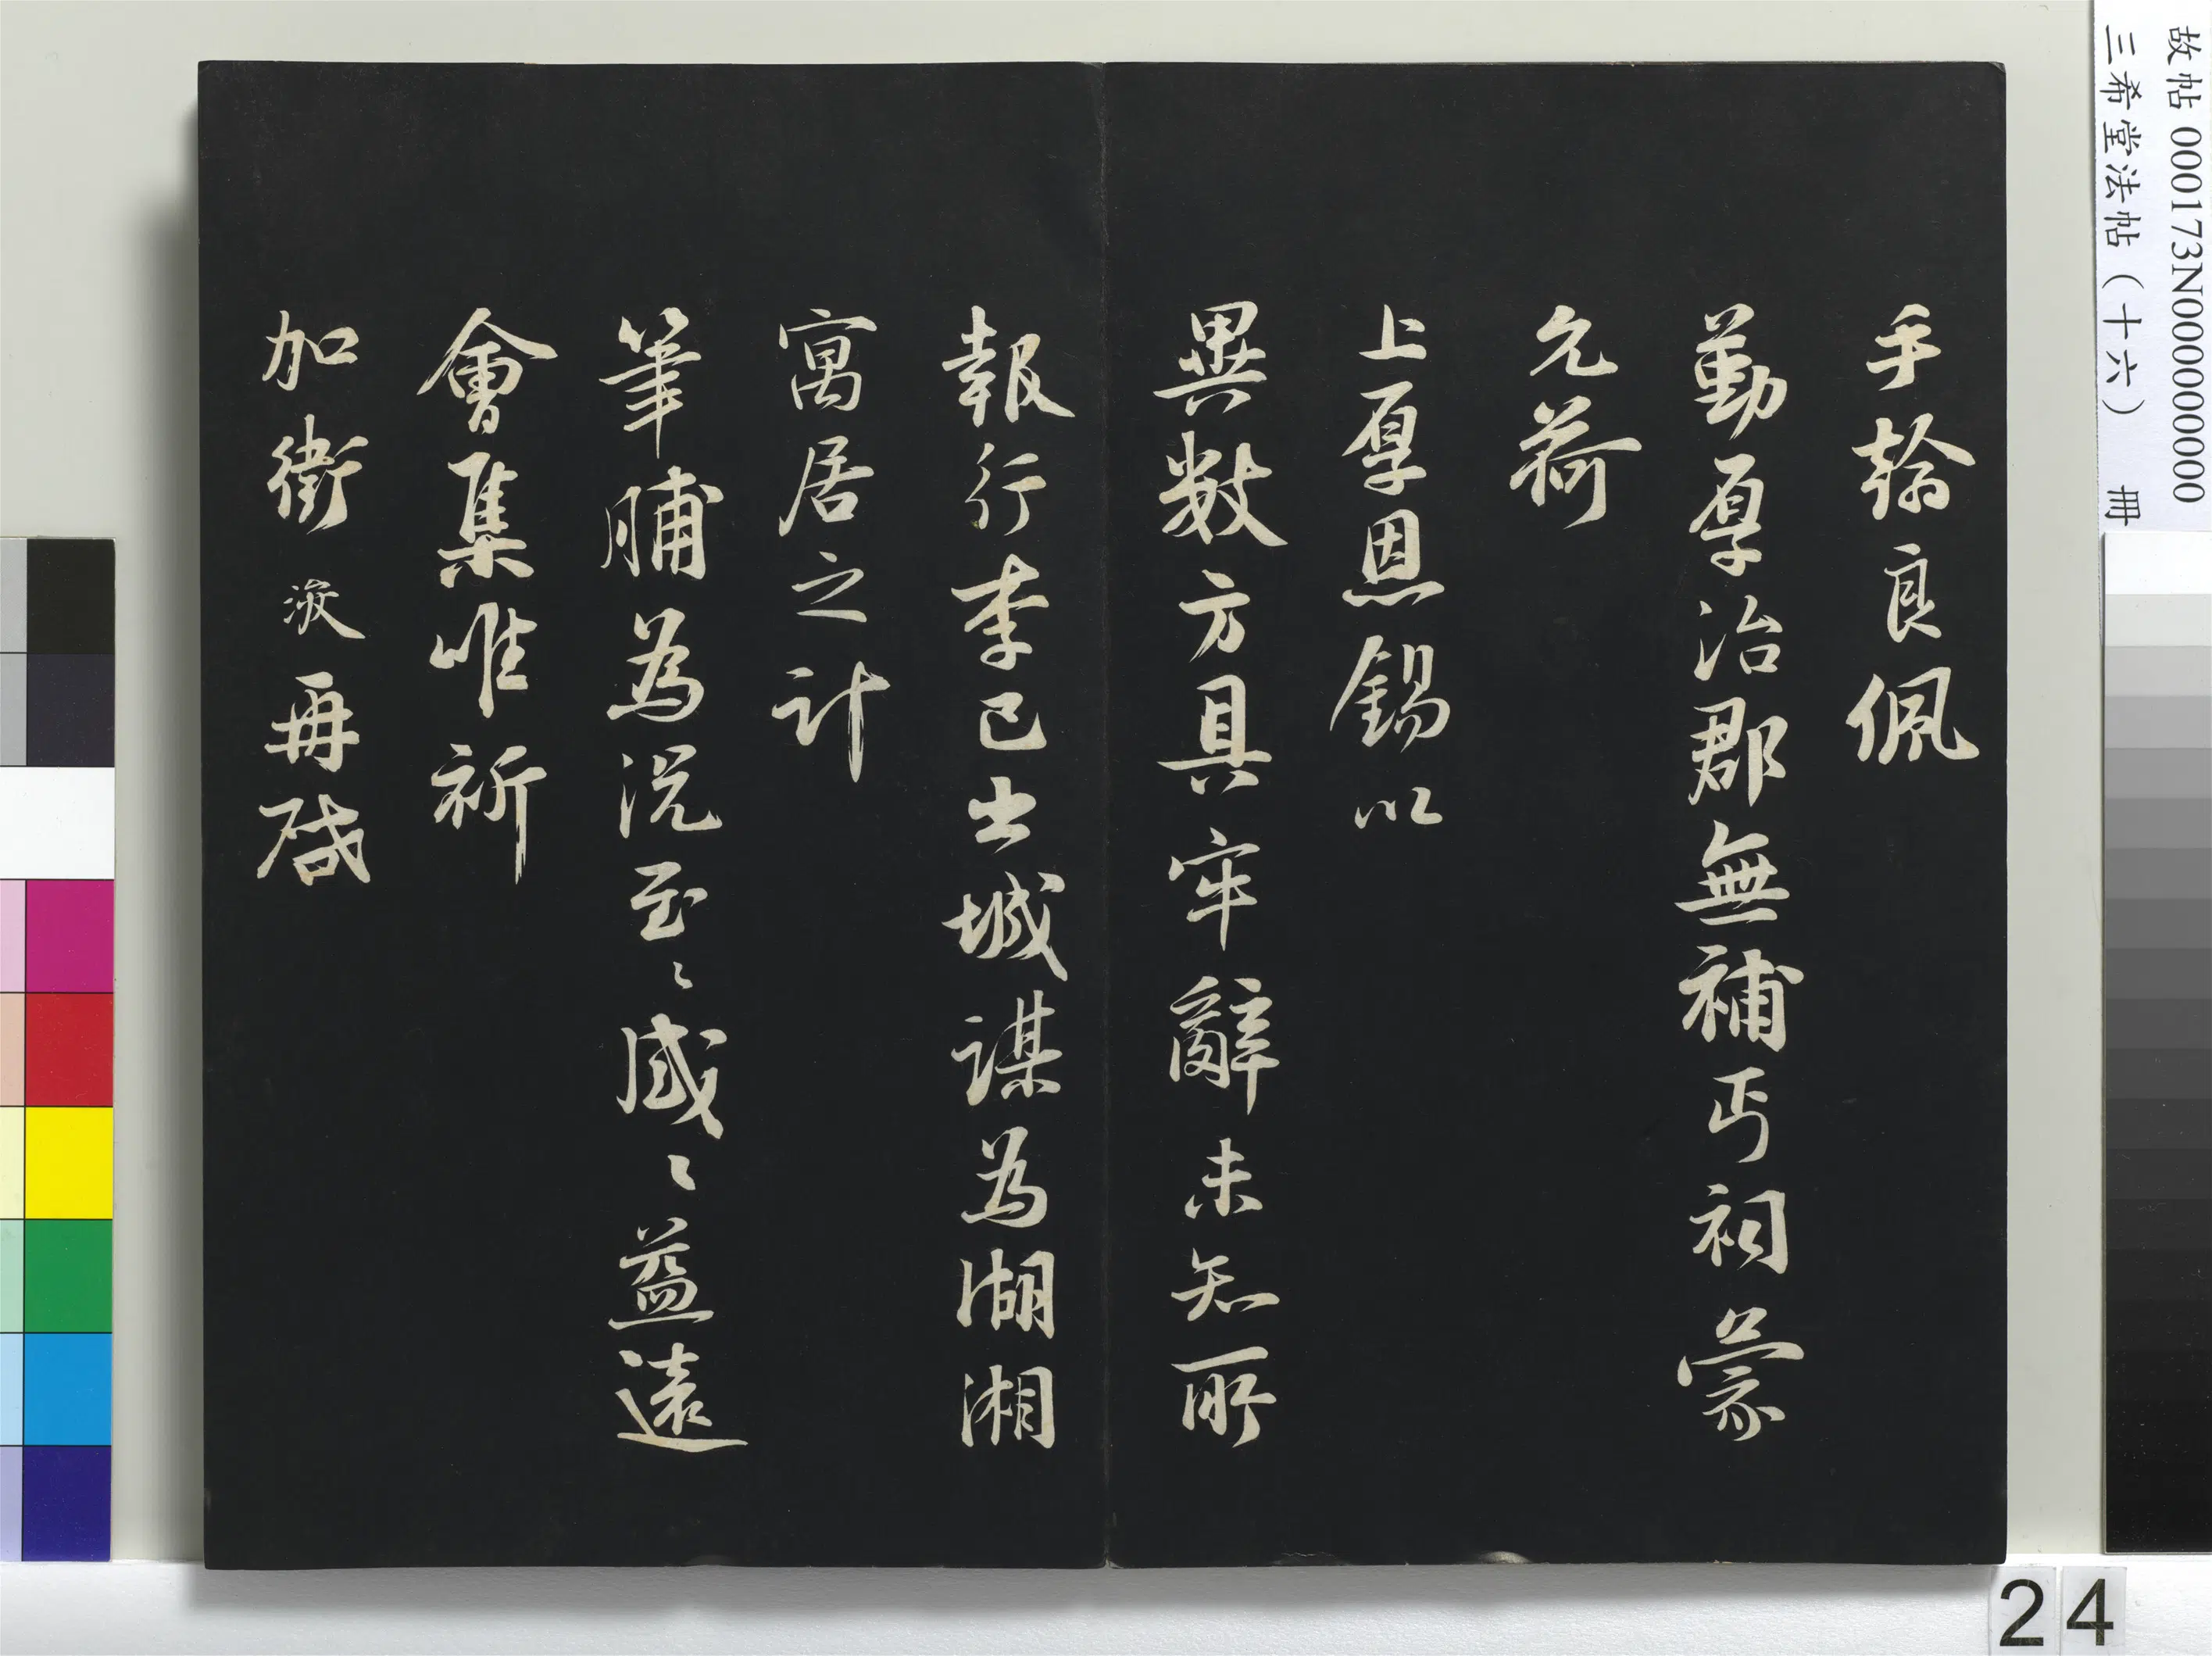 手翰良佩
勤厚治郡無補丐祠蒙
允荷
上厚恩錫以
異數方具牢辭未知所
報行李已出城謀為湖湘
寓居之計
筆脯為况至〻感〻益遠
會集唯祈
加衛浚再啓
故帖 000173N000000000
三希堂法帖（十六） 冊
24